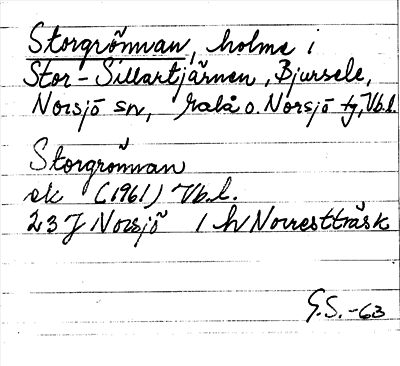 Storgrönnan, holme i
Stor-Sillartjärnen, Bjursele,
Norsjö sn, Malå o. Norsjö tg, Vb.l.
Storgrönnan
ek (1961) Vb.l.
23 J Norsjö 1 h Norresttråsk
G.S.-63